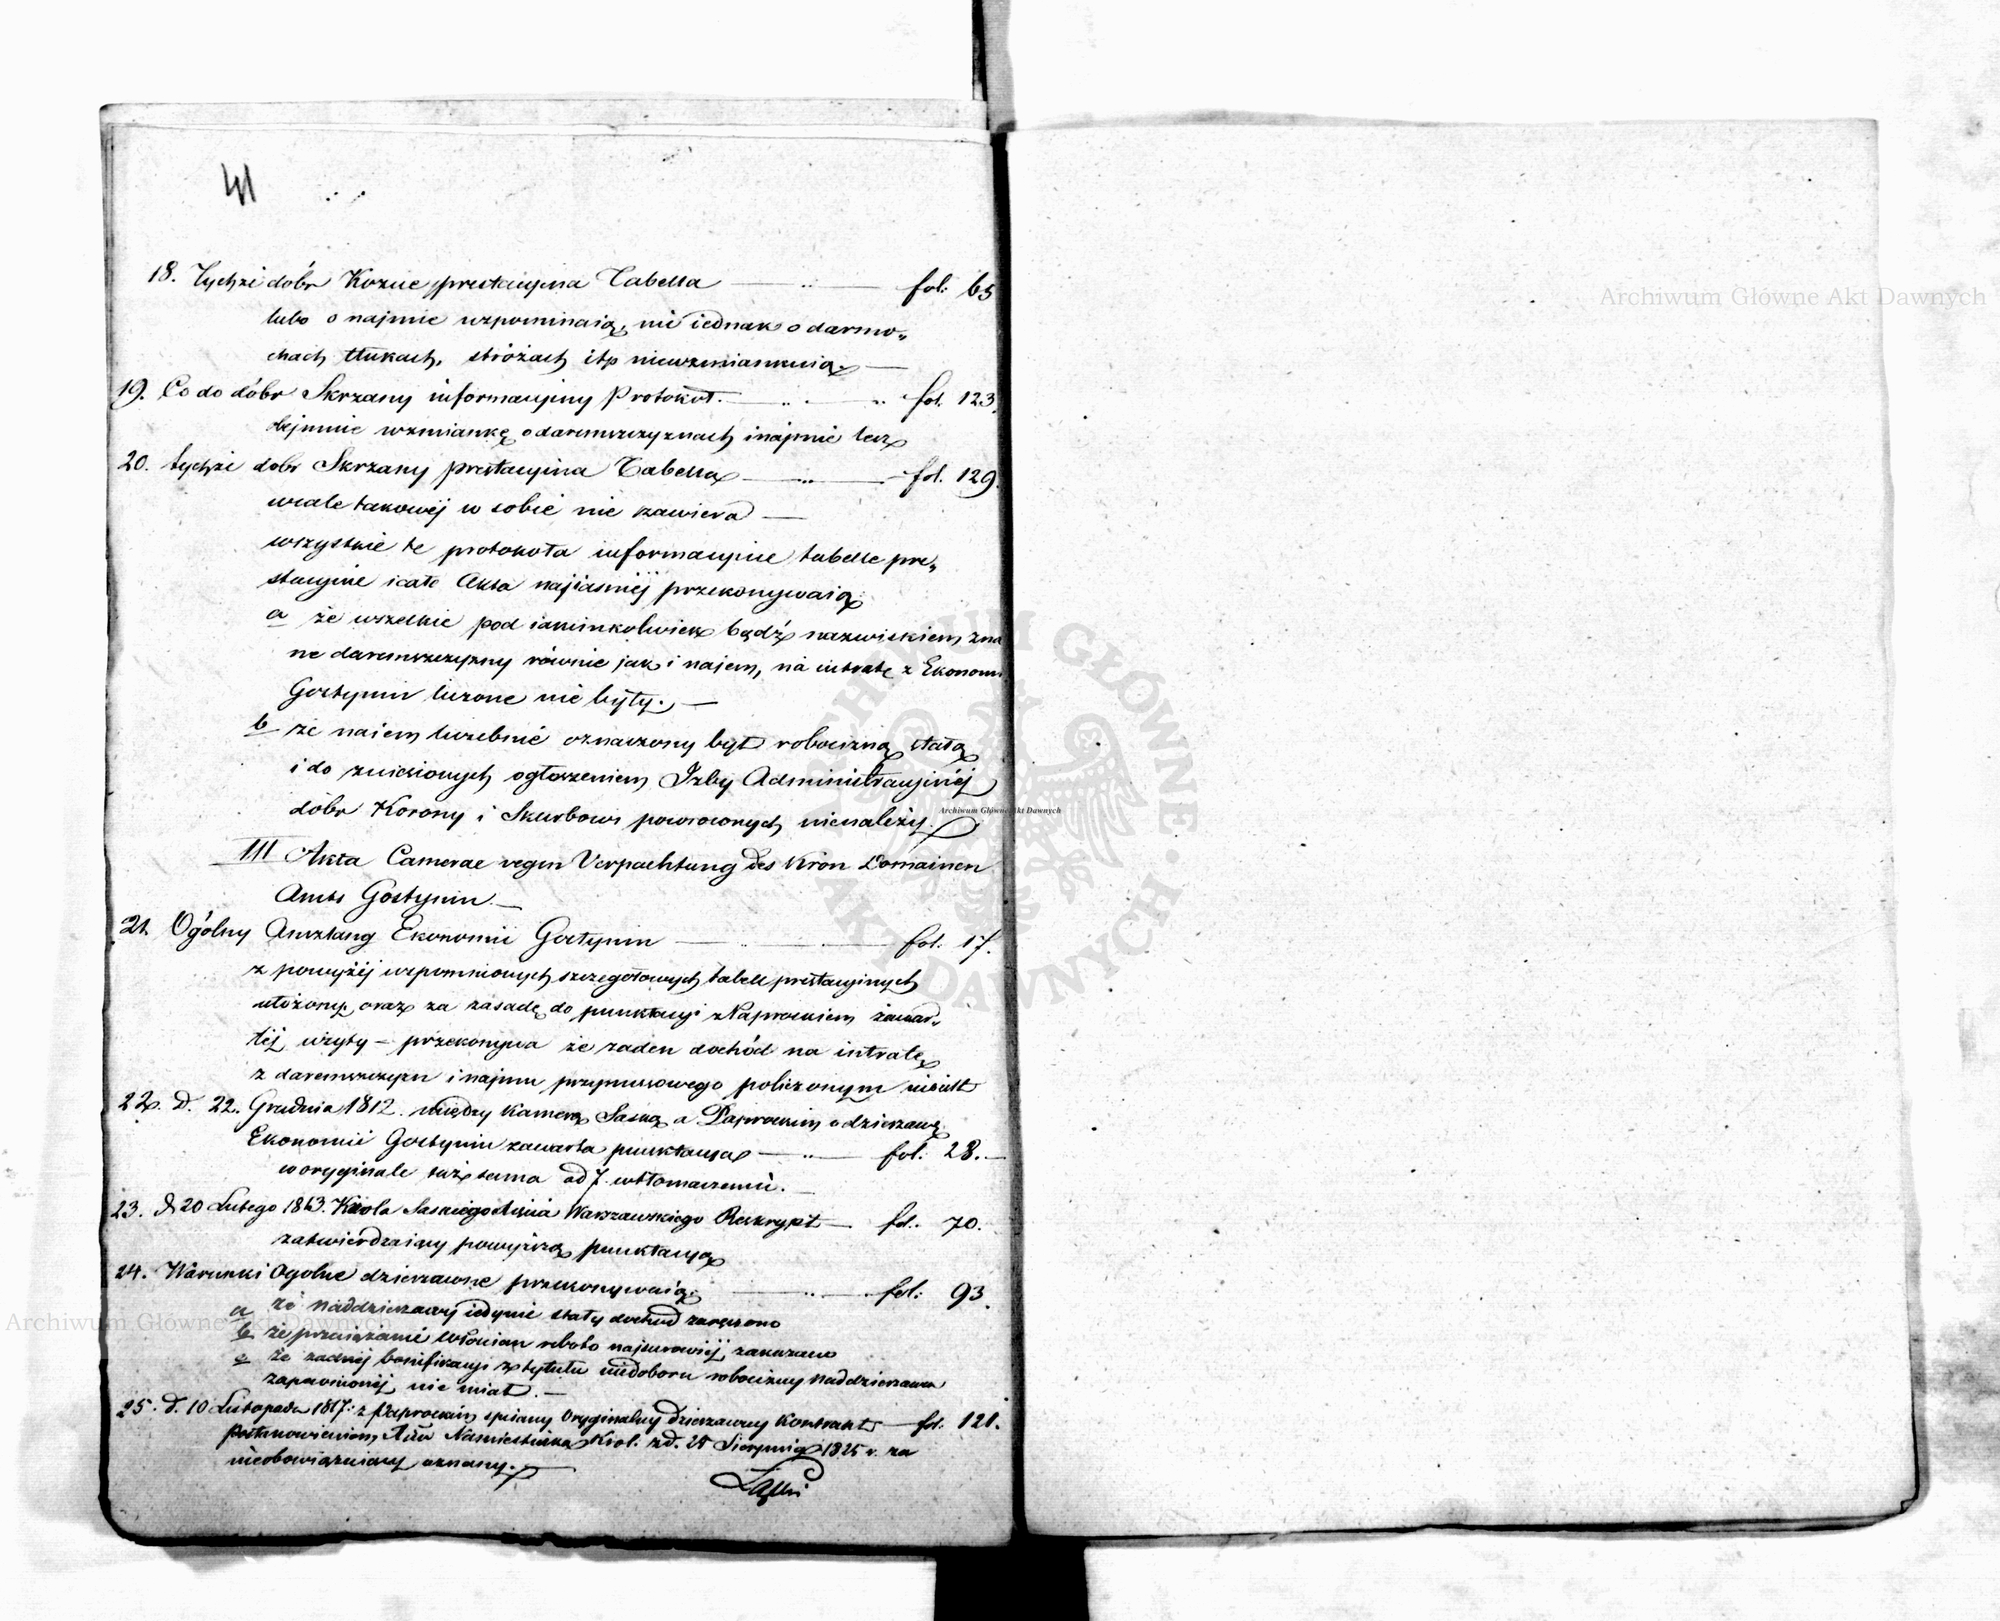 41
18. Tychże dóbr Kozice prestacyjna Tabella — „ — fol: 65
lubo o najmie wspominaią, nie iednak o darmo„
chach tłukach, stróżach itp niewzmiankuią —
19. Co do dóbr Skrzany informacyiny Protokuł. — „ — „ fol. 123.
obejmuie wzmiankę o daremszczyznach i najmie lecz
20. tychże dóbr Skrzany prestacyina Tabella — „ — fol. 129.
wcale takowéj w sobie nie zawiera —
wszystkie te protokoła informacyjne tabelle pre„
stacyjne i całe Akta najiaśniéj przekonywaią
a że wszelkie pod iakimkolwiek bądź nazwiskiem zna
ne daremszczyzny równie jak i najem, na intratę z Ekonom:
Gostynin liczone nie były. —
b że najem liczebnie oznaczony był robocizną stałą
i do zniesionych ogłoszeniem Izby Administracyinéj
dóbr Korony i Skarbowi powróconych nienależy.
III Akta Camerae wegen Verpachtung des Kron Domainen
Amts Gostynin. —
21. Ogólny Anschlag Ekonomii Gostynin — „ — fol. 17.
z powyżéj wspomnionych szczegółowych tabell prestacyinych
ułożony, oraz za zasadę do punktacyi z Paprockiem zawar„
téj użyty – przekonywa że żaden dochód na intratę
z daremszczyzn i najmu przymusowego policzonym nie iest
22. D. 22. Grudnia 1812. między Kamerą Saską a Paprockim o dzierżawę
Ekonomii Gostynin zawarta punktacya — „ — fol. 28. —
w oryginale taż sama ad 7. w tłomaczeniu. —
23. d 20 Lutego 1813. Króla Saskiego Xięcia Warszawskiego Reskrypt — fol. 70.
zatwierdzaiący powyższą punktacyą
24. Warunki Ogolne dzierzawne przekonywaią: — „ — fol: 93.
a że naddzierzawcy iedynie stały dochód zaręczono
b że przeciążanie Włościan robotą najsurowiéj zakazano
c że żadnéj bonifikacyi z tytułu niedoboru robocizny Naddzierzawca
zapewnionéj nie miał. —
25. d. 10 Listopada 1817: z Paprockim spisany Oryginalny Dzierzawny Kontrakt — fol. 121.
Postanowieniem Xcia Namiestnika Król: z d. 25 Sierpnia 1825 r. za
nieobowiązuiący uznany. —
Archiwum Główne Akt Dawnych
Archiwum Główne Akt Dawnych
Archiwum Główne Akt Dawnych
ARCHIWUM GŁÓWNE AKT DAWNYCH